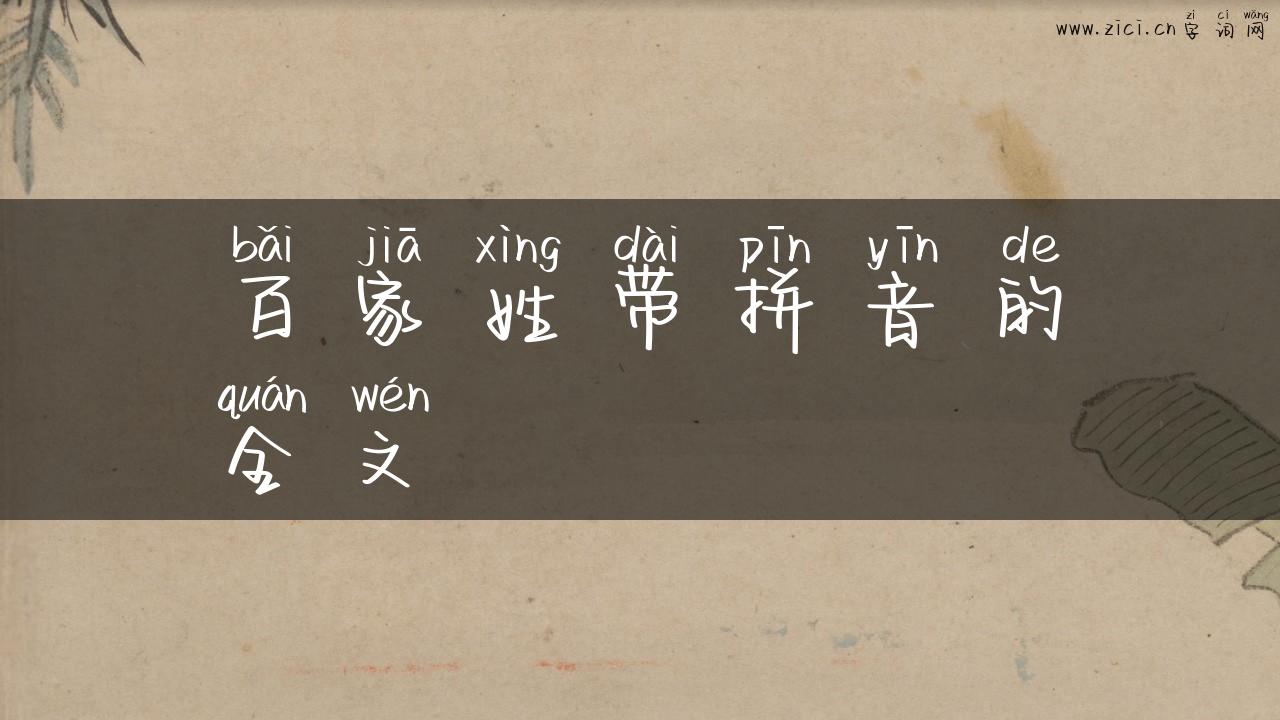 zì cí wǎng
www.zici.cn 字 词 网
bǎi jiā xìng dài pīn yīn de
百 家 姓 带 拼 音 的
quán wén
全 文